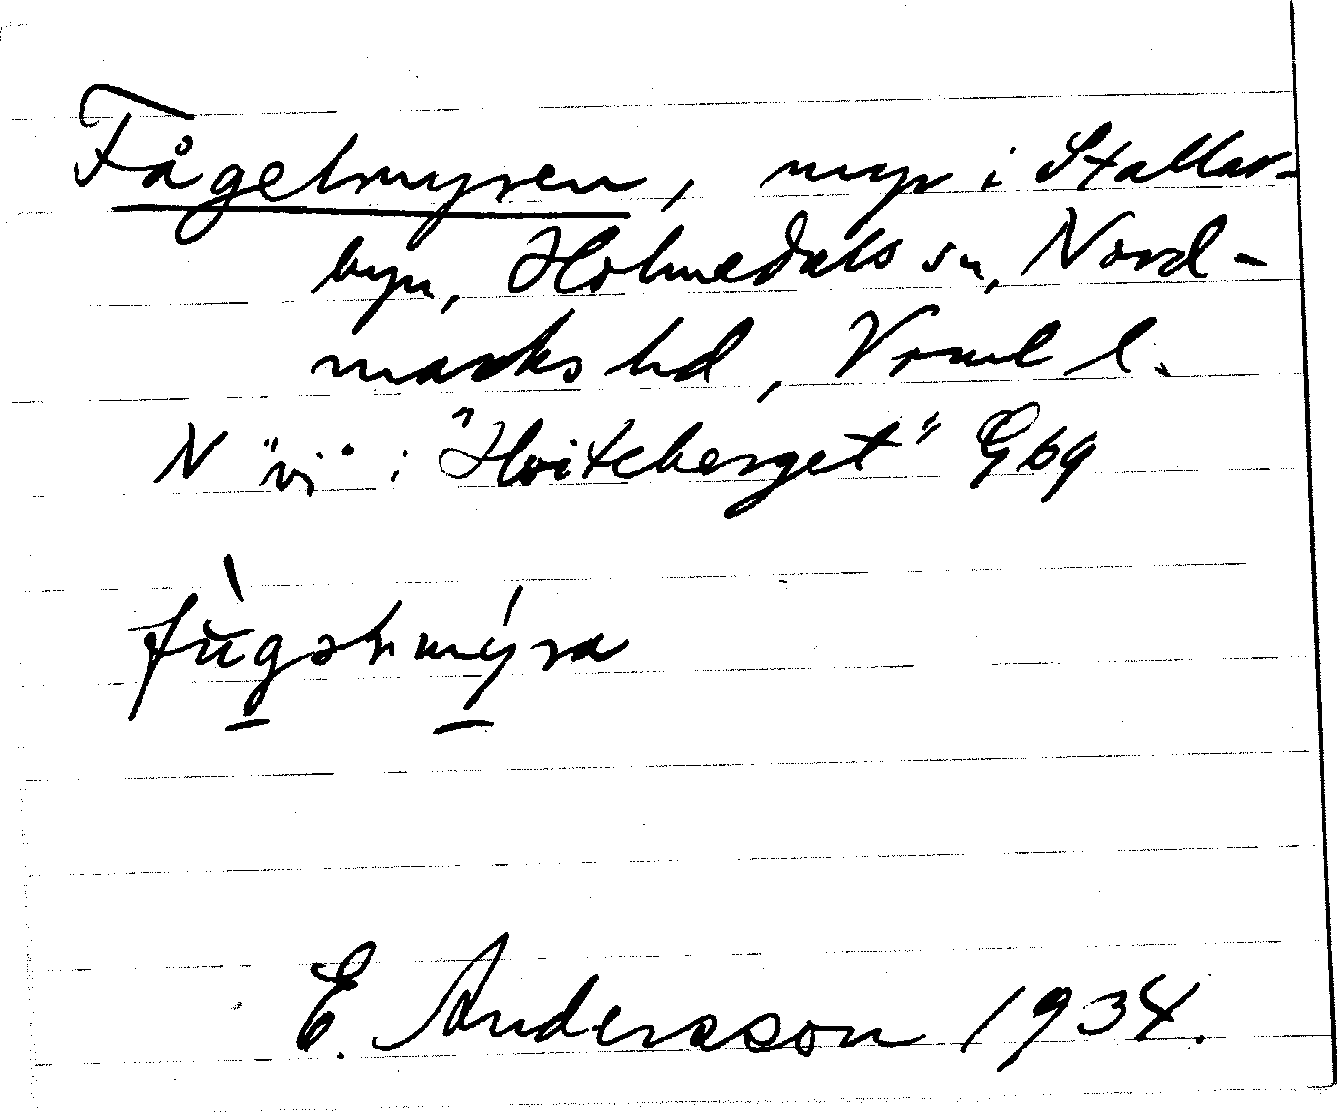 Fågelmyren, myr i Stallar-
byn, Holmedals sn, Nord-
marks hd, Vrml l.
N "vi" i "Hviteberget" Gbg
fùgəlmýra
E. Andersson 1934.